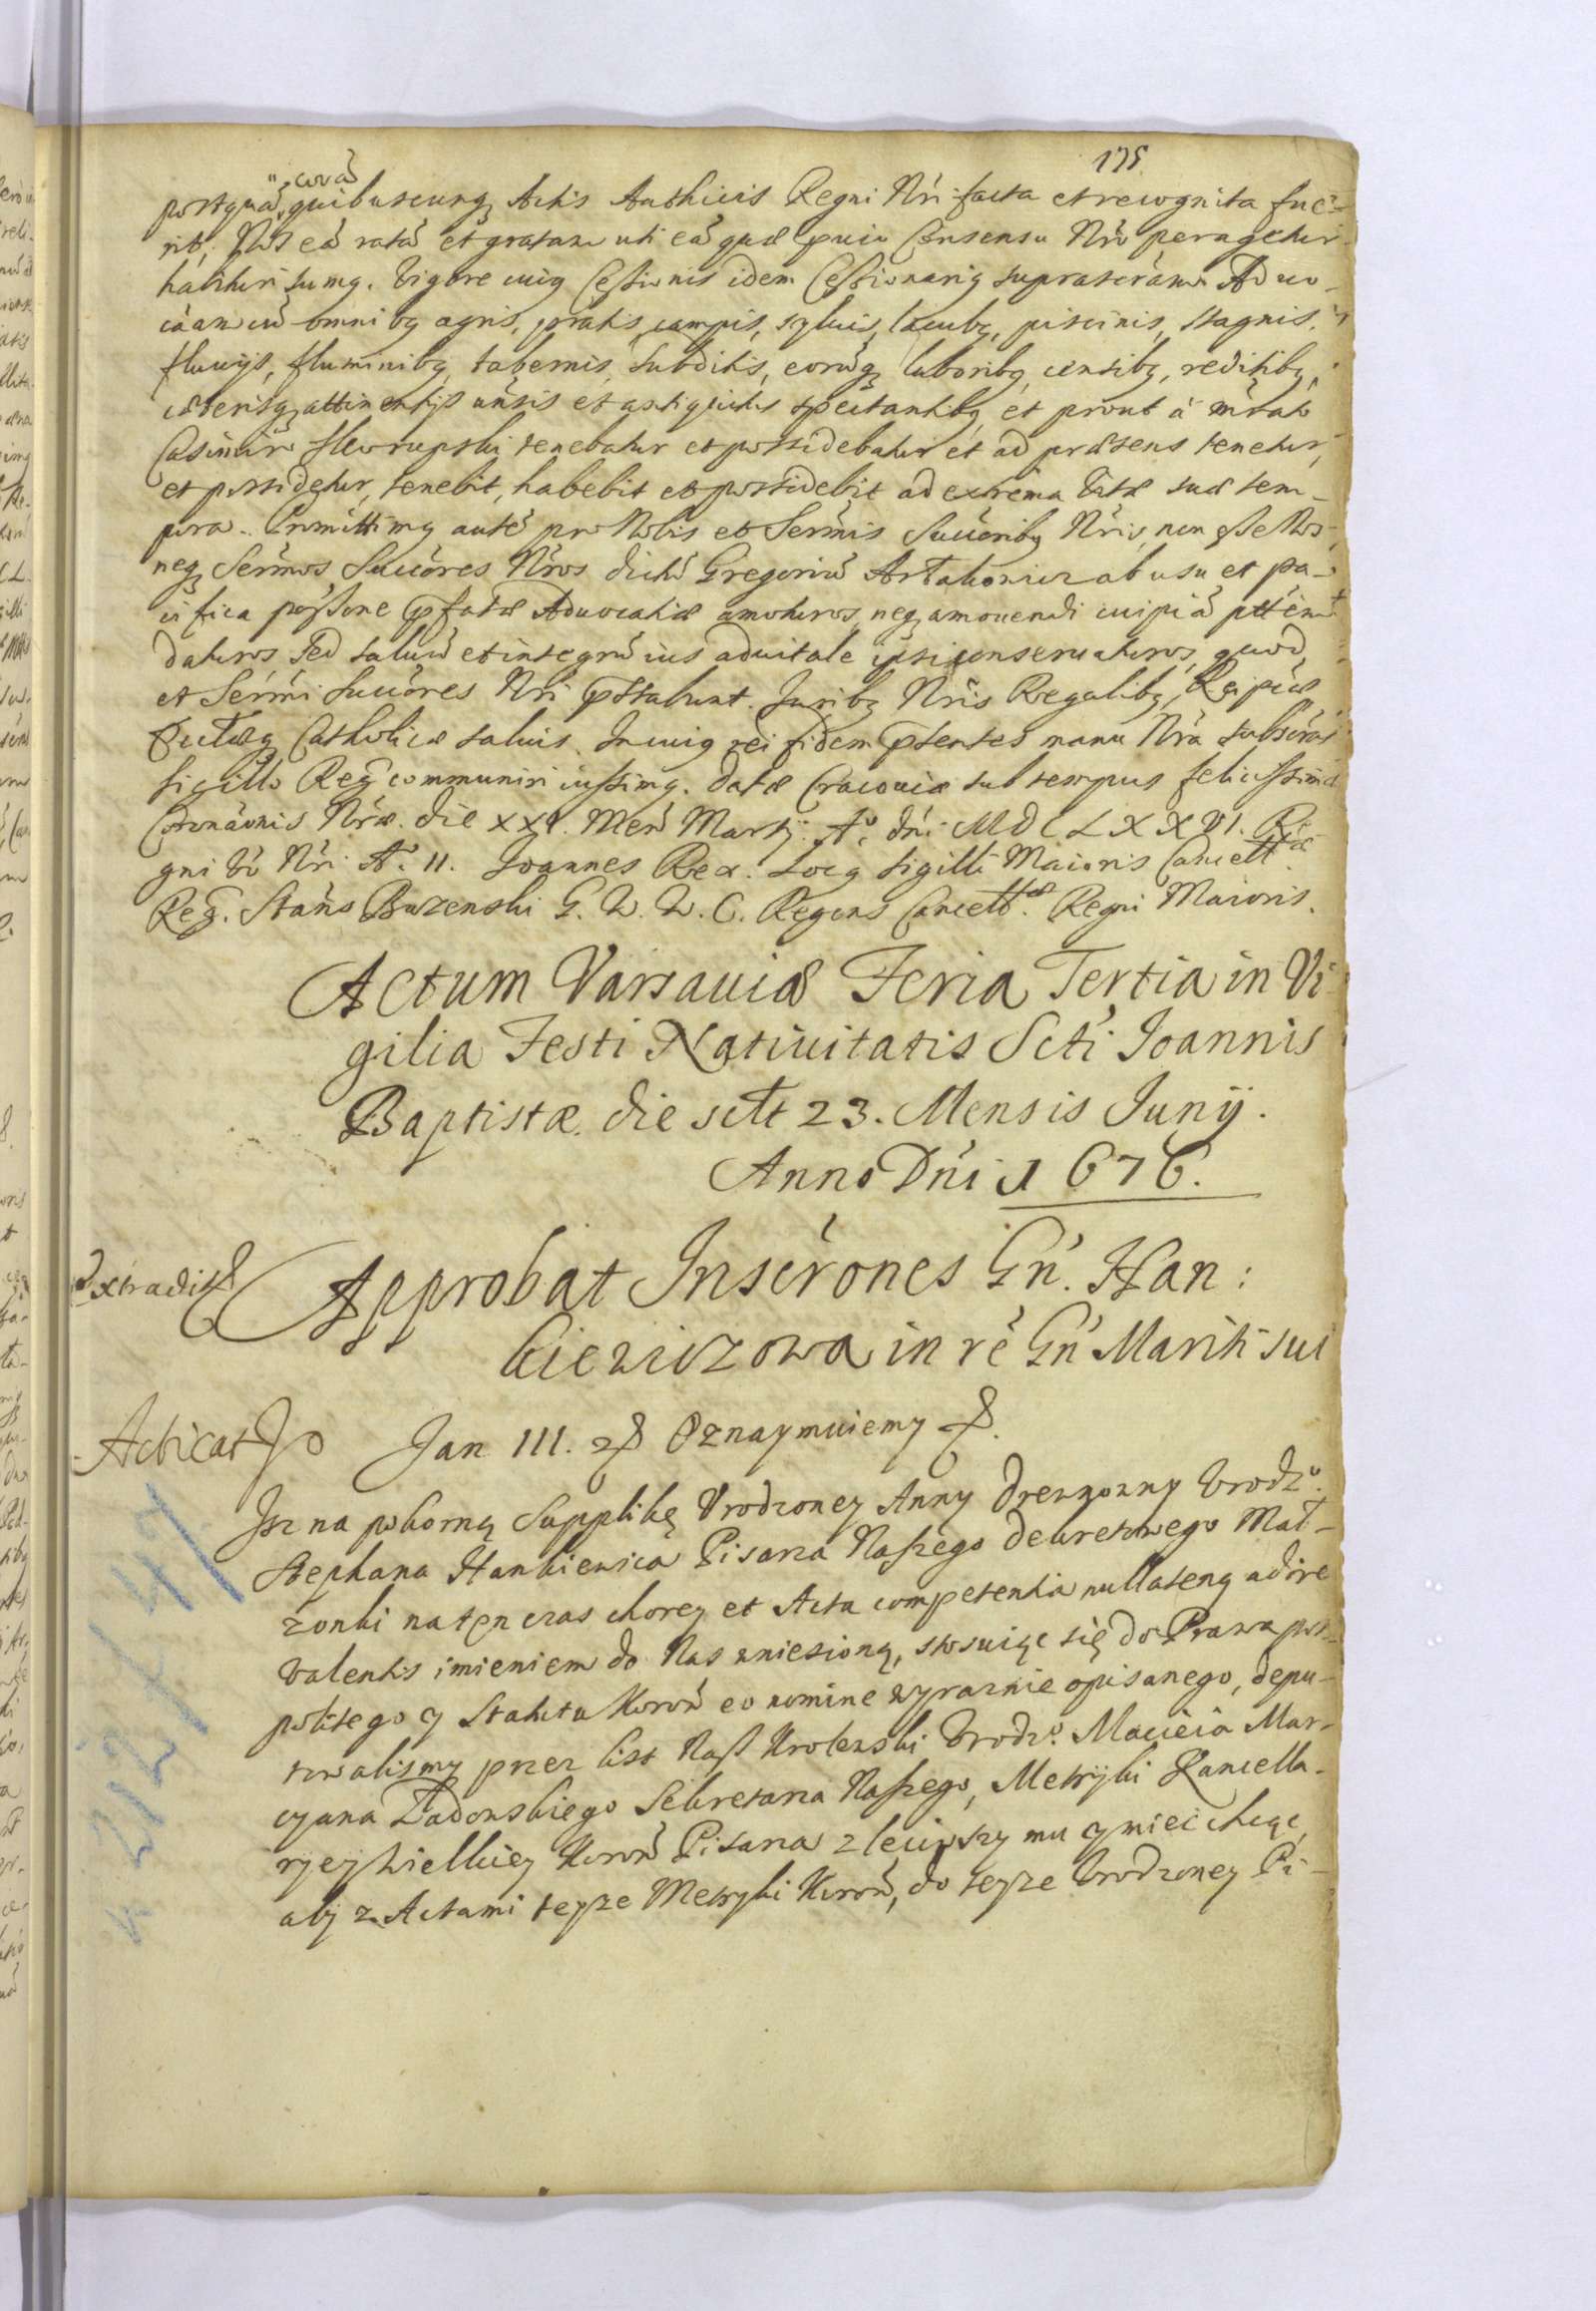 175
postquā corā quibuscunq́ Actis Authēcis Regni Nrī facta et recognita fue-
rit, Nos eā ratā et gratam uti eā quæ pvio Consensu Nrō peragetur
habituri sumq. Vigore cuiq Cessionis idem Cessionariq suprascrām Aduo-
cāam cū omnibq agris, pratis, campis, syluis, lacubq, piscinis, stagnis,
fluuijs, fluminibq, tabernis, subditis, eorūq́ laboribq, censibq, reditibq,
cæterisq́ attinentijs unsis et antiquitus spectantibq, et prout à mfato
Casimiro Skorupski tenebatur et possidebatur et ad præsens tenetur,
et possidetur, tenebit, habebit et possidebit ad extrema Vitæ suæ tem-
pora. Promittimq autē pro Nobis et Sermis Succoribq Nrīs, non esse Nos,
neq́ Sermos Succores Nrōs dictū Gregoriū ab usu et pa-
cifica possone pfatæ Aduocatiæ amoturos, neq́ amouendi cuipiā pttēm
daturos sed saluū et integrū ius aduitale ipsi conseruaturos, quod,
et Sermi Succores Nrī pstabunt. Juribq Nrīs Regalibq, Reipcæ
Catholicæ saluis. In cuiq rei fidem pntes manu Nrā subscras
sigillo Regī communiri iussimq. Datæ Cracouiæ sub tempus felicissimæ
Coronaonis Nræ. die XXI. Men Martij. Aº. Dni MDCLXXVI. Re-
gni Vo Nrī Aº. II. Joannes Rex. Locq Sigilli Maioris Cancellriæ
Reg. Stans Buzenski G. W. W. C. Regens Cancellriæ. Regni Maioris.
Actum Varsauiæ Feria Tertia in Vi-
gilia Festi Natiuitatis Scti Joannis
Baptistæ. die sclt 23. Mensis Junij.
Anno Dni 1676.
Extradit
Approbat Inscrones Gn. Han:
kiewiczowa in rē Gn Mariti sui
Acticat Jo Jan III. Oznaymuiemy
Isz na pokorną Supplikę Urodzoney Anny Drewnowny Vrodzº.
Stephana Hankiewica Pisarza Naszego dekretowego Mał-
zonki na ten czas chorey et Acta competentia nullatenq adire
valentis imieniem do Nas wniesioną, stosuiąc się do Prawa pos-
politego y Statutu Koron eo nomine wyraznie opisanego, depu-
towalismy przez List Nasz Krolewski Vrodzº. Macieia Mar-
cyana Ładowskiego Sekretarza Naszego, Metryki Kancella-
ryey Wielkiey Koron Pisarza zleciwszy mu y miec chcąc,
aby z Actami teyze Metryki Koron, do teyze Vrodzoney Pi-